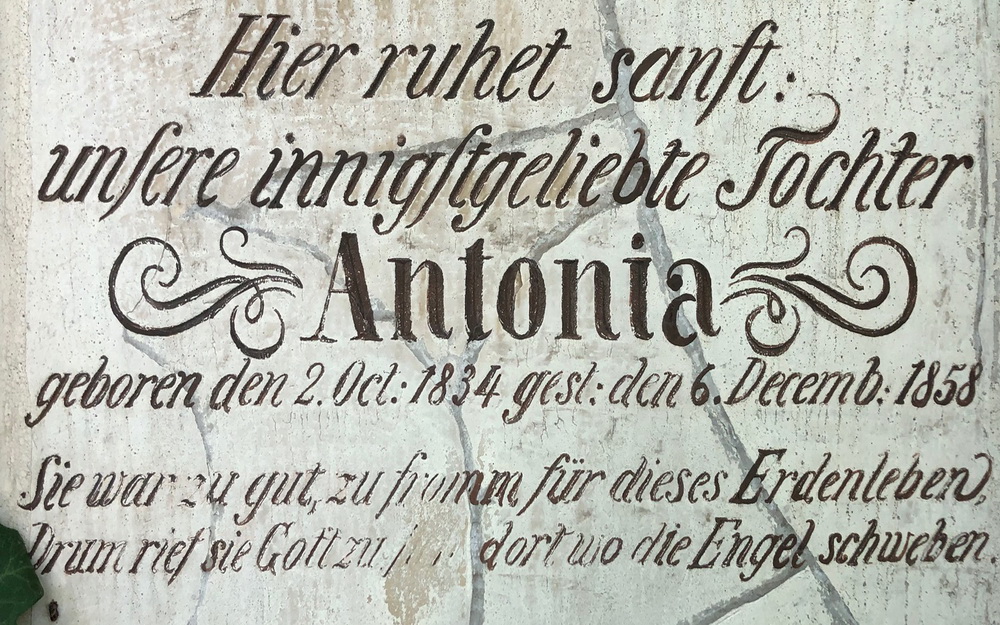 Hier ruhet sanft:
unſere innigſtgeliebte Tochter
Antonia
geboren den 2. Oct: 1834 gest: den 6. Decemb: 1858
Sie war zu gut, zu fromm für dieses Erdenleben,
Drum rief sie Gott zu dort wo die Engel schweben.